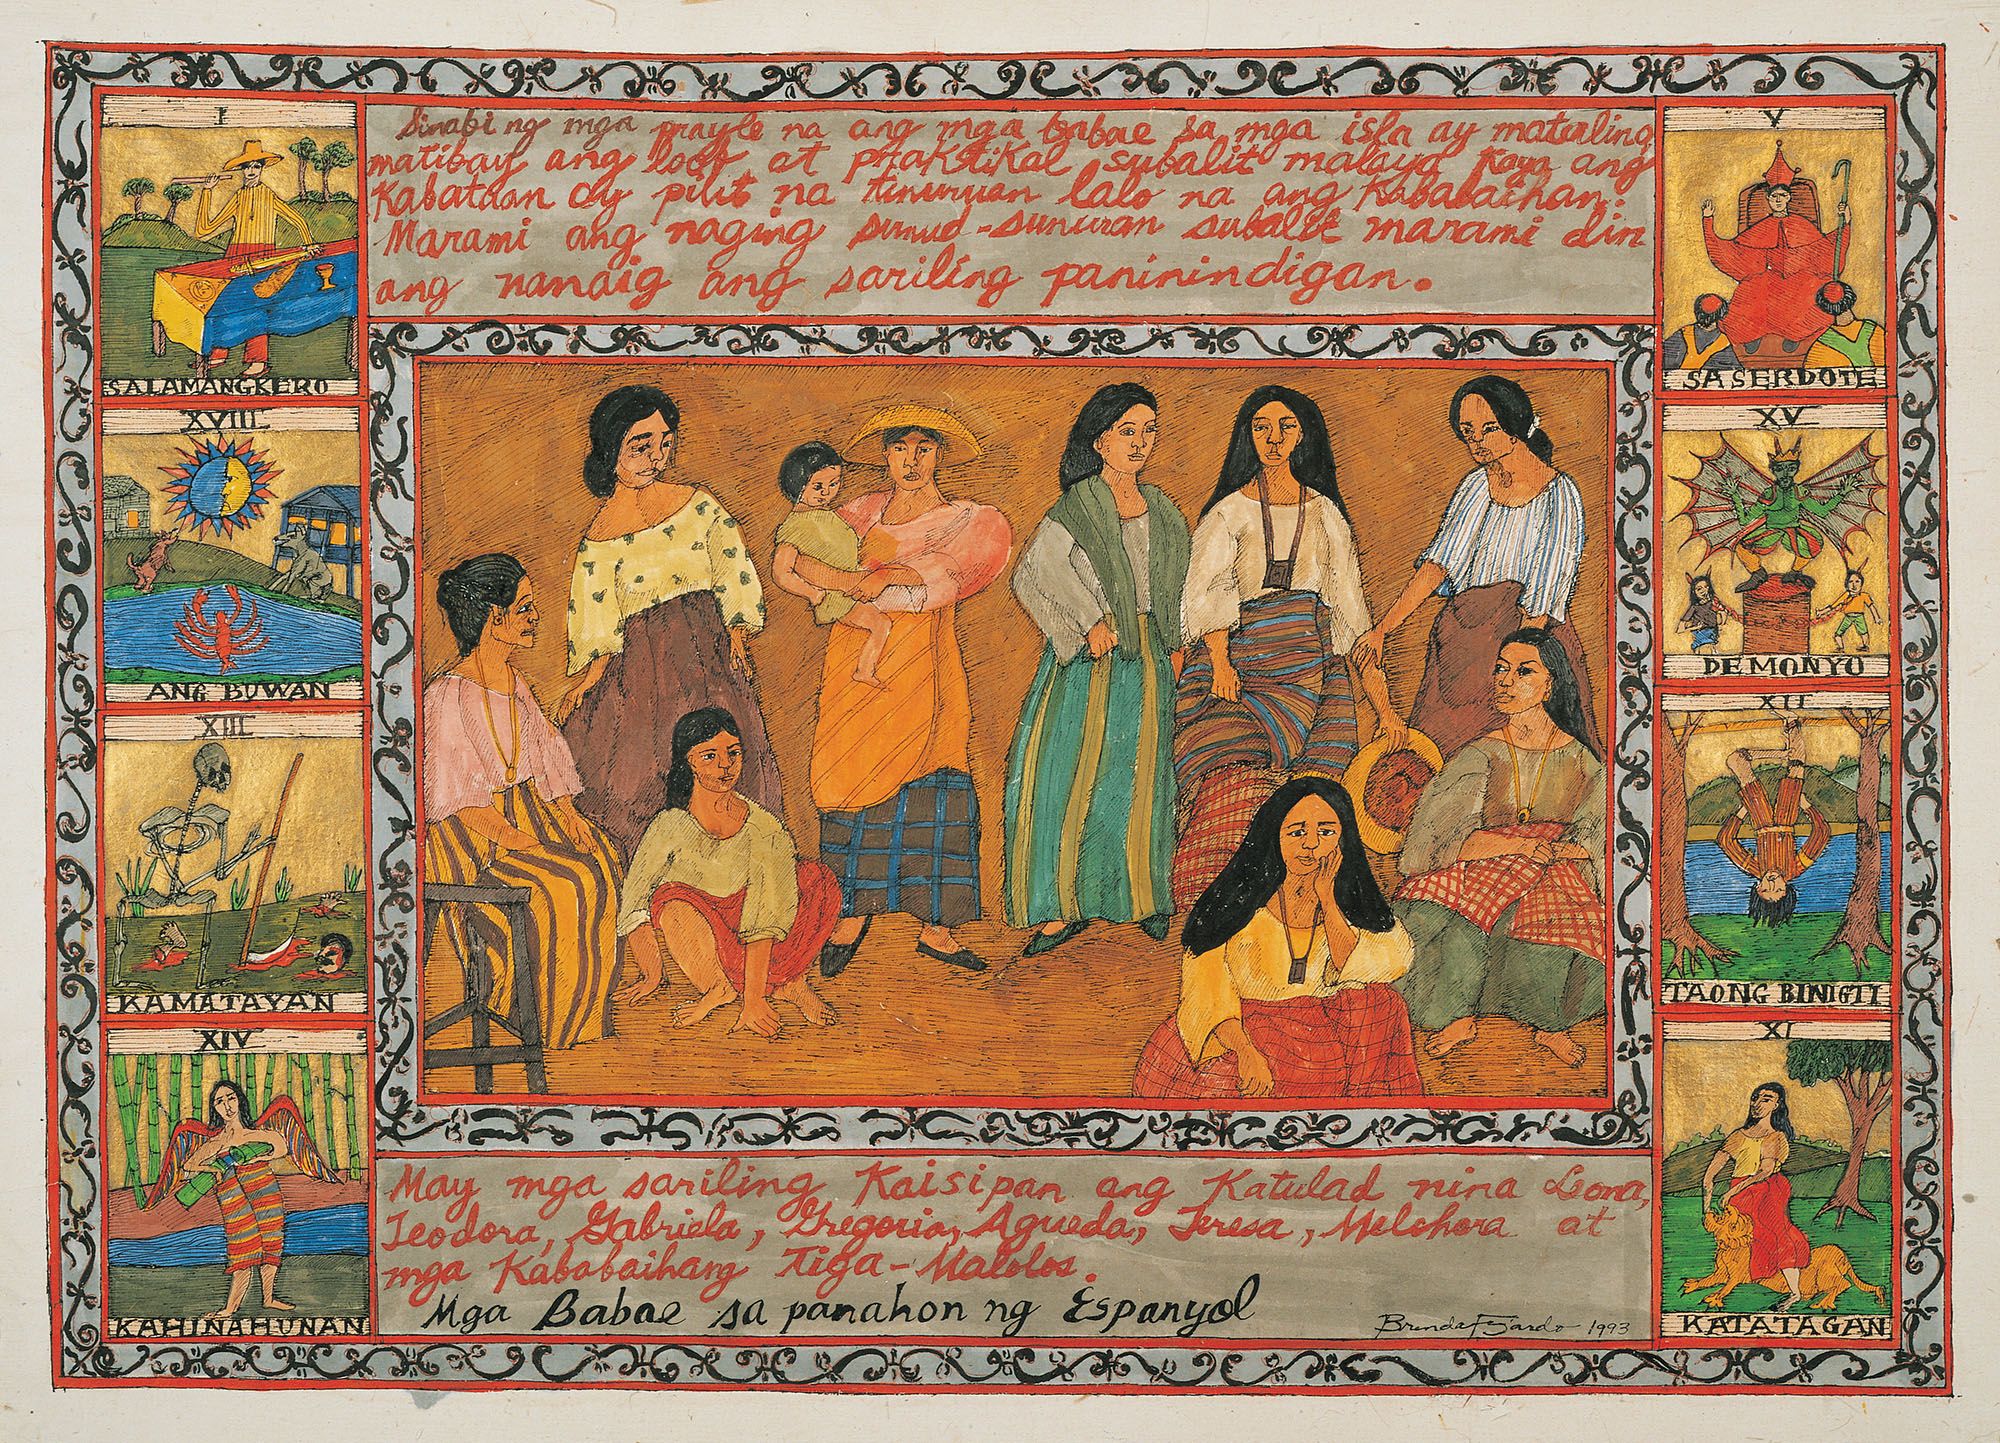 I
SALAMANGKERO
XVIII
ANG BUWAN
XIII
KAMATAYAN
XIV
KAHINAHUNAN
Sinabi ng mga prayle na ang mga babae sa mga isla ay matalino,
matibay ang loob at praktikal subalit malaya kaya ang
Kabataan ay pilit na tinuruan lalo na ang Kababaihan.
Marami ang naging sunud-sunuran subalit marami din
ang nanaig ang sariling paninindigan.
May mga sariling Kaisipan ang Katulad nina Leona,
Teodora, Gabriela, Gregoria, Agueda, Teresa, Melchora at
mga Kababaihang Tiga-Malolos.
Mga Babae sa panahon ng Espanyol
Brenda Fajardo 1993
V
SASERDOTE
XV
DEMONYO
XII
TAONG BINIGTI
XI
KATATAGAN